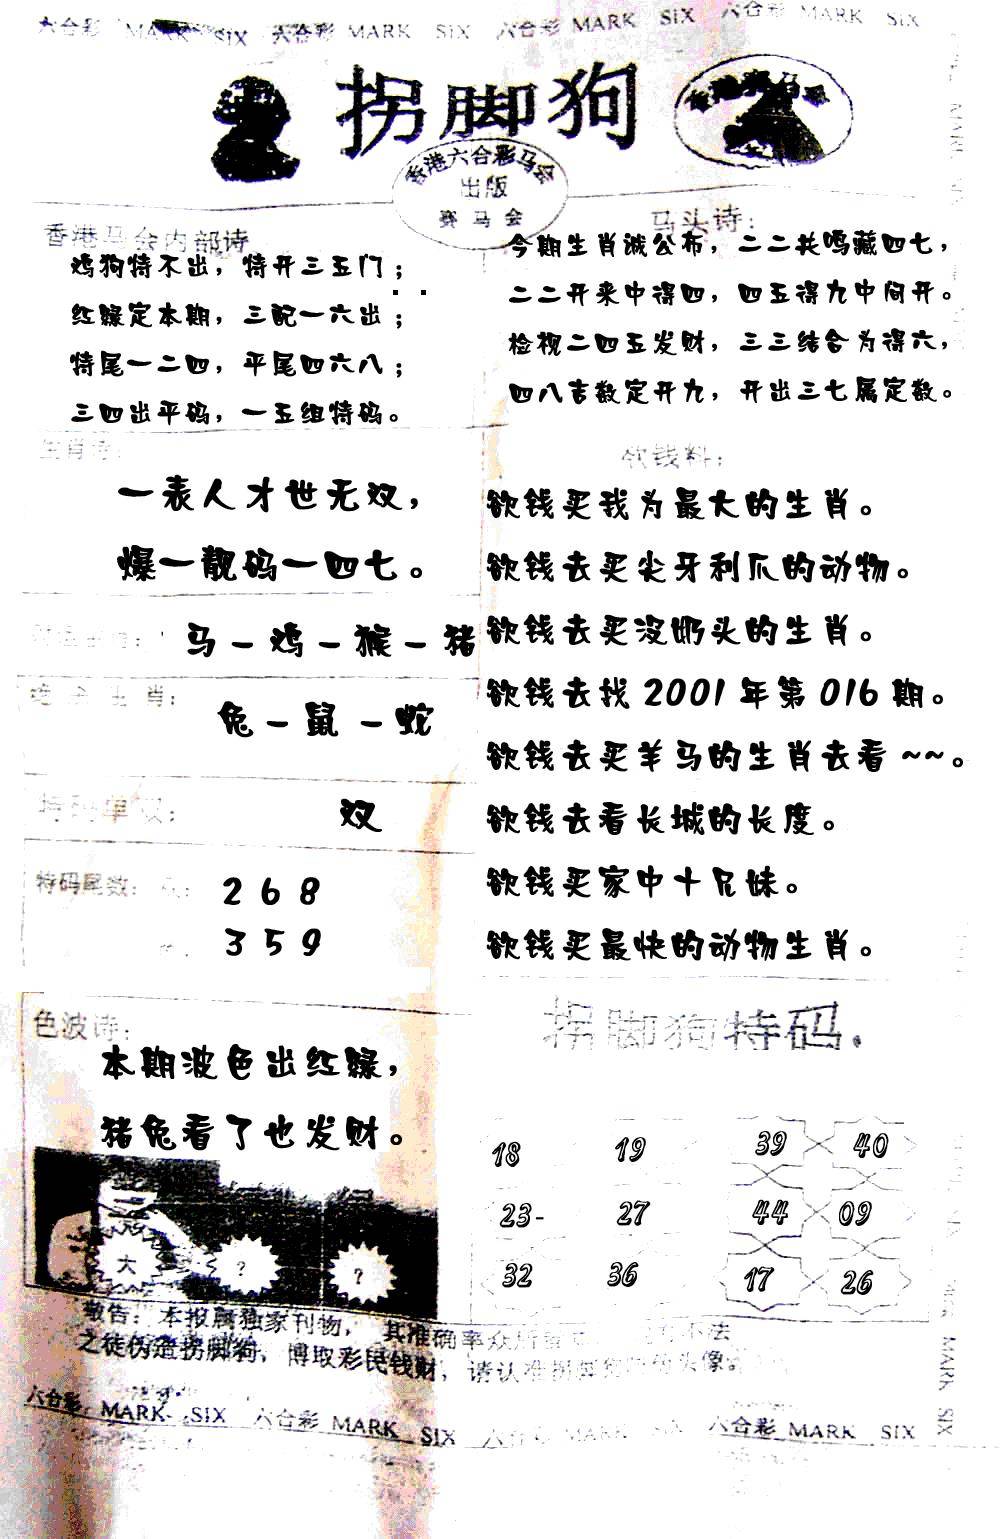 六合彩 MARK SIX 六合彩 MARK SIX 六合彩 MARK SIX 六合彩 MARK SIX
拐脚狗
香港六合彩马会
出版
赛马会
香港马会内部诗
鸡狗特不出，特开三五门；
红绿定本期，三配一六出；
特尾一二四，平尾四六八；
三四出平码，一五组特码。
马头诗：
今期生肖诚公布，二二共鸣藏四七，
二二开来中得四，四五得九中间开。
检视二四五发财，三三结合为得六，
四八吉数定开九，开出三七属定数。
生肖诗：
一表人才世无双，
爆一靓码一四七。
马－鸡－猴－猪
生肖：
兔－鼠－蛇
特码单双：
双
特码尾数：
2 6 8
3 5 9
色波诗：
本期波色出红绿，
猪兔看了也发财。
欲钱料：
欲钱买我为最大的生肖。
欲钱去买尖牙利爪的动物。
欲钱去买没奶头的生肖。
欲钱去找 2001 年第 016 期。
欲钱去买羊马的生肖去看 ~~。
欲钱去看长城的长度。
欲钱买家中十兄妹。
欲钱买最快的动物生肖。
拐脚狗特码.
18 19 39 40
23- 27 44 09
32 36 17 26
大 ? ?
敬告：本报属独家刊物，其准确率众所 不法
之徒伪造拐脚狗，博取彩民钱财，请认准拐脚狗 头像。
六合彩 MARK SIX 六合彩 MARK SIX 六合彩 MARK SIX 六合彩 MARK SIX
MARK SIX